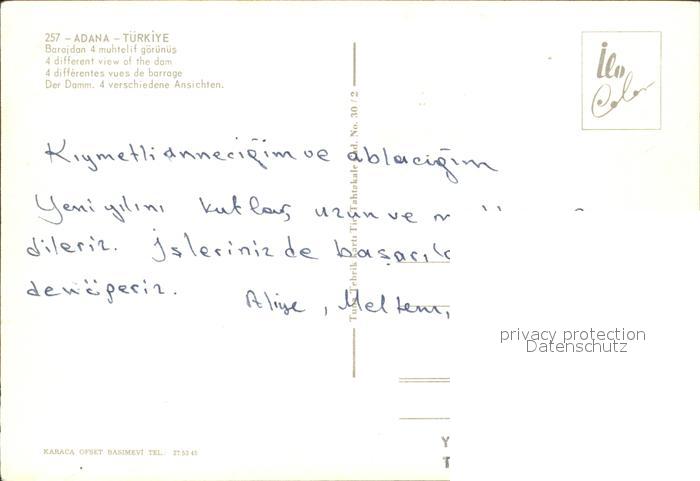 257 – ADANA – TÜRKİYE
Barajdan 4 muhtelif görünüş
4 different view of the dam
4 différentes vues de barrage
Der Damm. 4 verschiedene Ansichten.
İlo
Color
Kıymetli anneciğim ve ablacığım
Yeni yılını kutlar, uzun ve
dileriz. İşlerinizde
den öperiz.
Aliye, Meltem,
Tebrik Kartı Tic. Tahtakale Cad. No. 30 / 2
privacy protection
Datenschutz
Y
T
KARACA OFSET BASIMEVİ TEL: 27 53 45